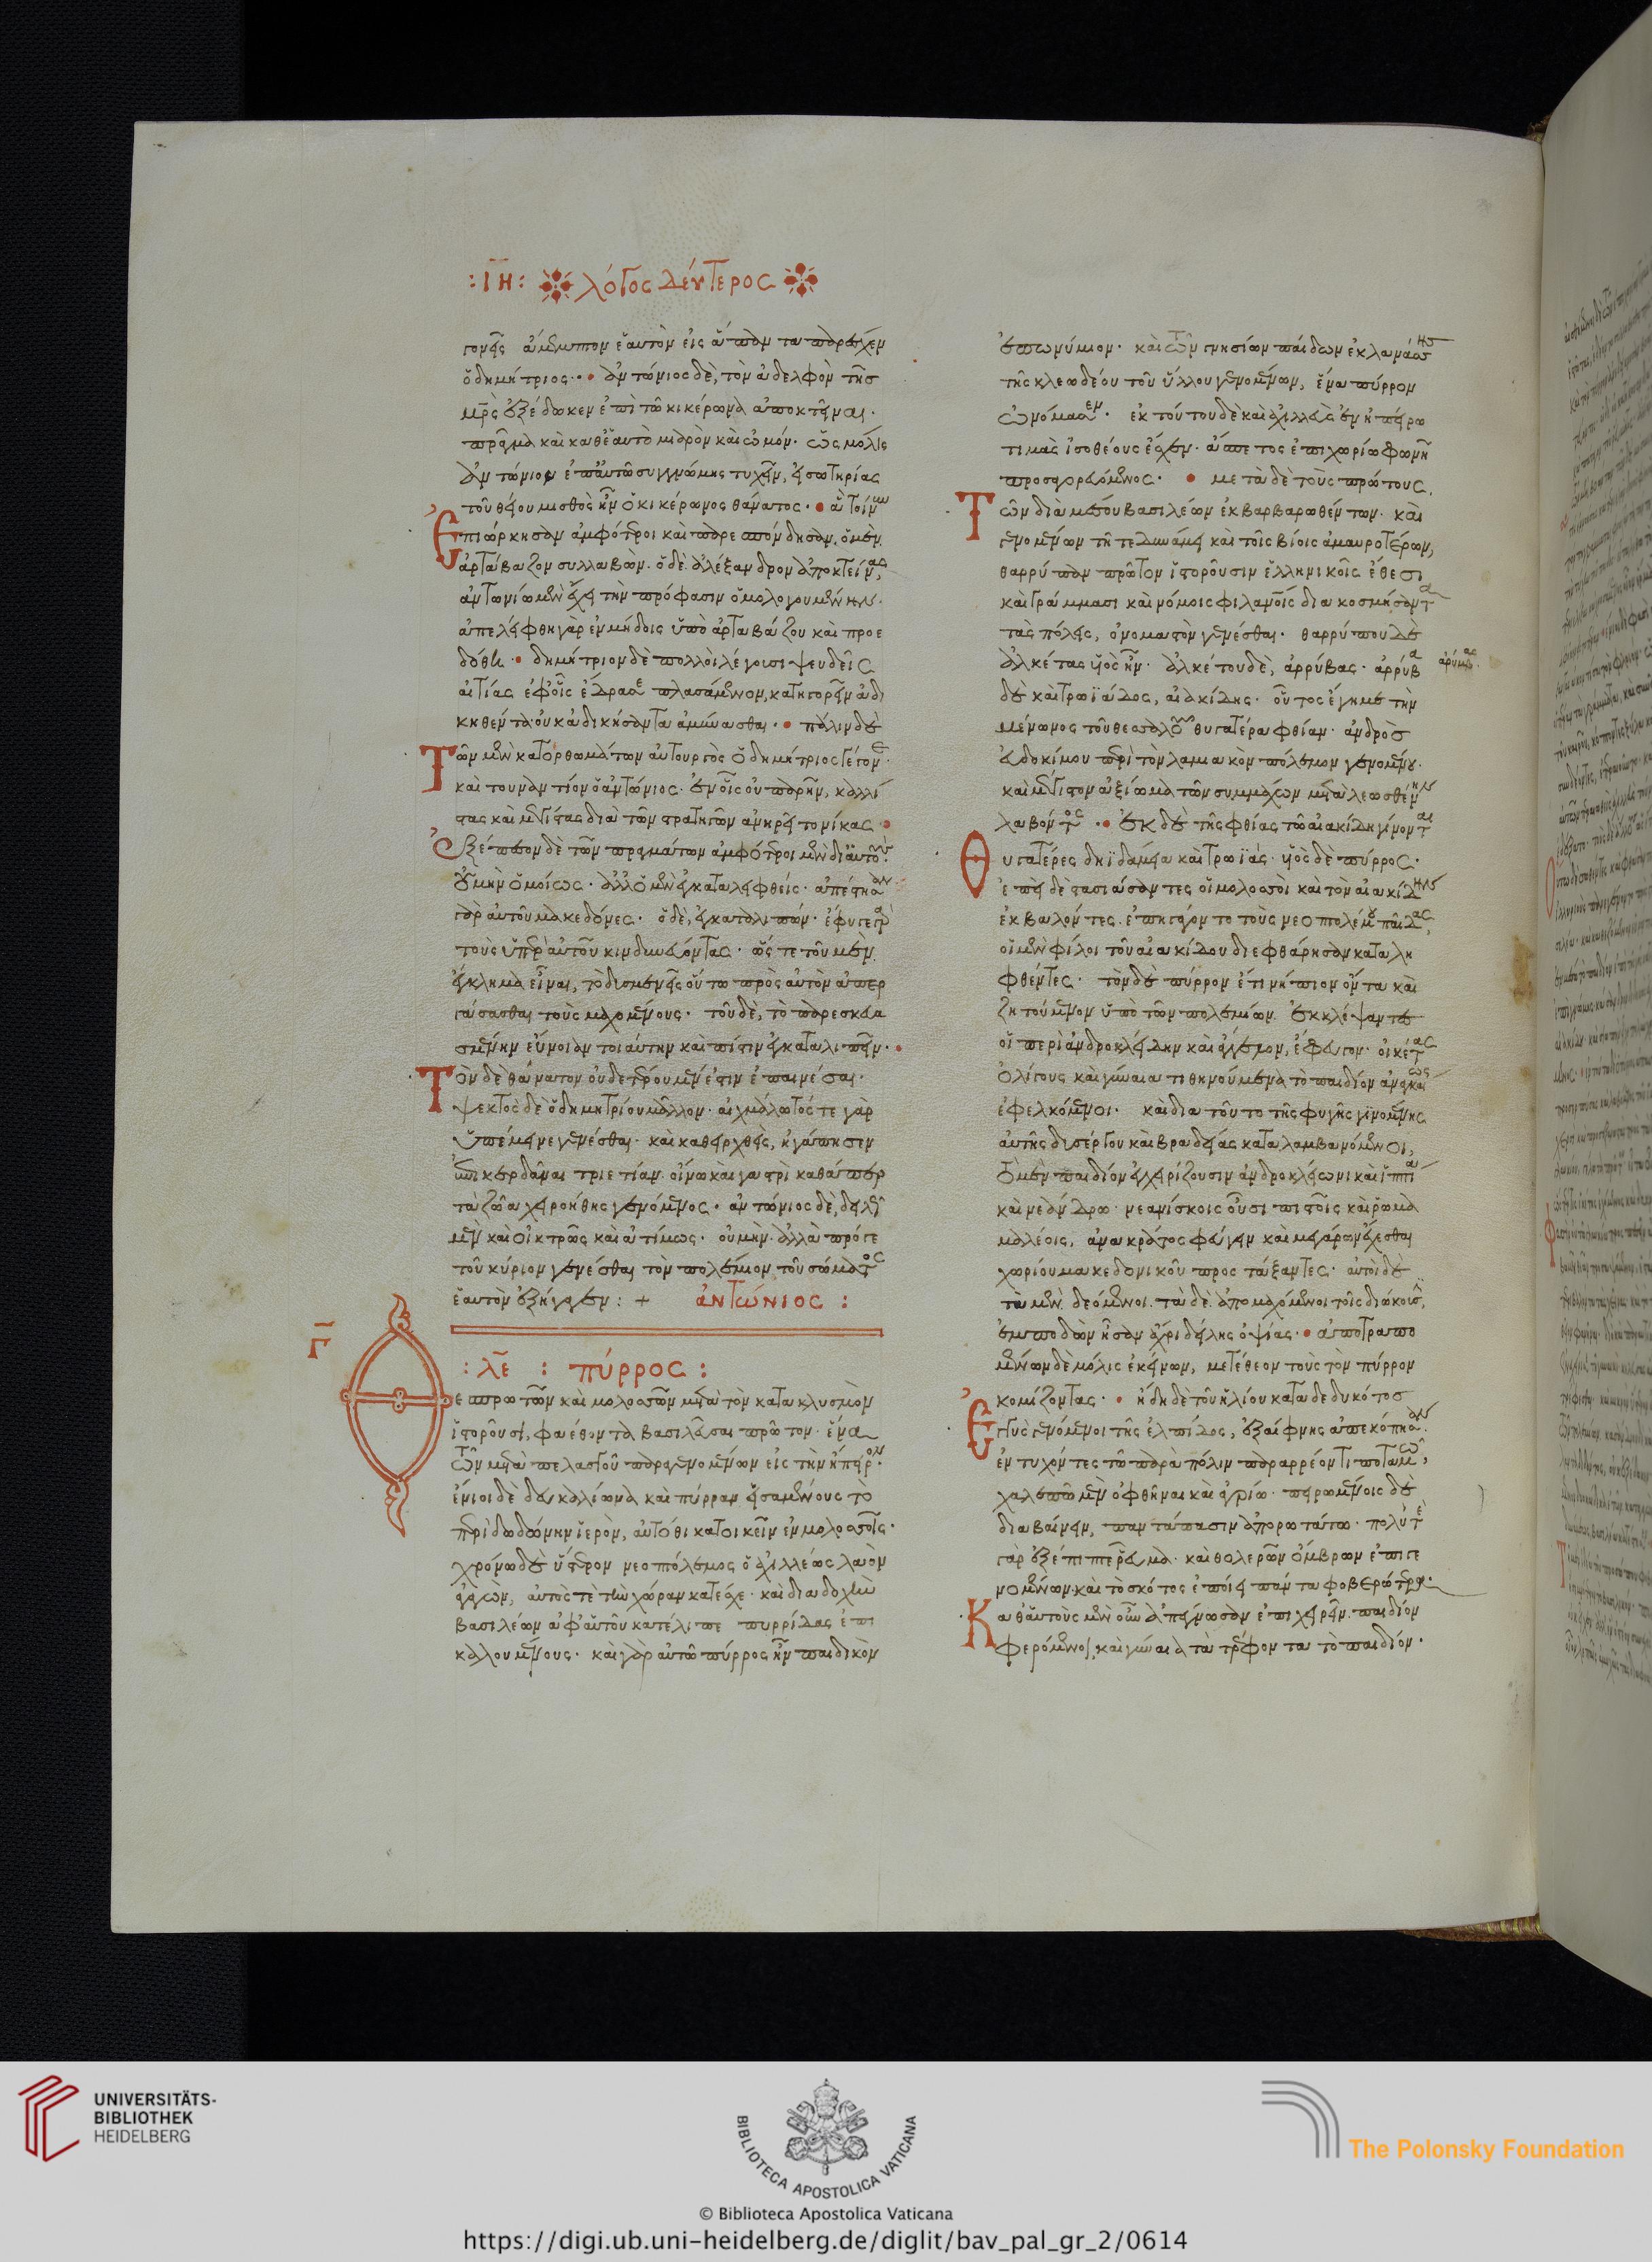 :ΙΗ: λόγος δεύτερος
γονεῖς ἄμεμπτον ἑαυτὸν εἰς ἅπαντα παρέσχεν
ὁ δημήτριος· ἀντώνιος δὲ, τὸν ἀδελφὸν τῆς
μρς ἐξέδωκεν ἐπὶ τῶ κικέρωνα ἀποκτεῖναι·
πρᾶγμα καὶ καθ' ἑαυτὸ μιαρὸν καὶ ὠμόν· ὡς μόλις
ἀντώνιον ἐπ' αὐτῶ συγγνώμης τυχεῖν, εἰ σωτηρίας
τοῦ θείου μισθὸς ἦν ὁ κικέρωνος θάνατος· ἃ τοίνυν
Ἐπιώρκησαν ἀμφότεροι καὶ παρεσπόνδησαν. ὁ μὲν
ἀρτάβαζον συλλαβὼν· ὁ δὲ ἀλέξανδρον ἀποκτείνας,
ἀντωνίω μὲν ἔχει τὴν πρόφασιν ὁμολογουμένην·
ἀπελείφθη γὰρ ἐν μήδοις ὑπὸ ἀρταβάζου καὶ προε
δόθη· δημήτριον δὲ πολλοὶ λέγουσι ψευδεῖς
αἰτίας ἐφ' οἷς ἔδρασε πλασάμενον, κατηγορεῖν ἀδι
κηθέντα οὐκ ἀδικήσαντα ἀμύνασθαι· πάλιν δὲ
Τῶν μὲν κατορθωμάτων αὐτουργὸς ὁ δημήτριος γέγονε·
καὶ τοὐναντίον ὁ ἀντώνιος· ἐν οἷς οὐ παρῆν, καλλί
στας καὶ μεγίστας διὰ τῶν στρατηγῶν ἀνηρεῖτο νίκας·
Ἐξέπεσον δὲ τῶν πραγμάτων ἀμφότεροι μὲν δι' αὐτούς·
οὐ μὴν ὁμοίως· ἀλλ' ὁ μὲν ἐγκαταλειφθείς· ἀπέστησαν
γὰρ αὐτοῦ μακεδόνες· ὁ δὲ, ἐγκαταλιπών· ἔφυγε γὰρ
τοὺς ὑπὲρ αὐτοῦ κινδυνεύοντας· ὥστε τοῦ μὲν
ἔγκλημα εἶναι, τὸ δυσμενεῖς οὕτω πρὸς αὐτὸν ἀπερ
γάσασθαι τοὺς μαχομένους· τοῦ δὲ, τὸ παρεσκευα
σμένην εὔνοιαν τοιαύτην καὶ πίστιν ἐγκαταλιπεῖν·
Τὸν δὲ θάνατον οὐδετέρου μέν ἐστιν ἐπαινέσαι·
ψεκτὸς δὲ ὁ δημητρίου μᾶλλον· αἰχμάλωτός τε γὰρ
ὑπέμεινε γενέσθαι· καὶ καθειρχθεὶς, ἠγάπησεν
ἐπικερδᾶναι τριετίαν οἴνω καὶ γαστρὶ καθάπερ
τὰ ζῶα χειροήθης γενόμενος· ἀντώνιος δὲ, δειλῶς
μὲν καὶ οἰκτρῶς καὶ ἀτίμως· οὐ μὴν ἀλλὰ πρό γε
τοῦ κύριον γενέσθαι τὸν πολέμιον τοῦ σώματος
ἑαυτὸν ἐξήγαγεν: + ἀντώνιος :
Γ
: λε : πύρρος :
Θεσπρωτῶν καὶ μολοσσῶν μετὰ τὸν κατακλυσμὸν
ἱστοροῦσι, φαέθοντα βασιλεῦσαι πρῶτον· ἕνα
τῶν μετὰ πελασγοῦ παραγενομένων εἰς τὴν ἤπειρον·
ἔνιοι δὲ δευκαλίωνα καὶ πύρραν εἱσαμένους τὸ
περὶ δωδώνην ἱερὸν, αὐτόθι κατοικεῖν ἐν μολοσσοῖς·
χρόνω δὲ ὕστερον νεοπόλεμος ὁ ἀχιλλέως λαὸν
ἀγαγὼν, αὐτός τε τὴν χώραν κατέσχε· καὶ διαδοχὴν
βασιλέων ἀφ' αὑτοῦ κατέλιπε πυρρίδας ἐπι
καλουμένους· καὶ γὰρ αὐτῶ πύρρος ἦν παιδικὸν
ἐπωνύμιον· καὶ τῶν γνησίων παίδων ἐκ λανάσσης
τῆς κλεωδέου τοῦ ὕλλου γενομένων, ἕνα πύρρον
ὠνόμασεν· ἐκ τούτου δὲ καὶ ἀχιλλεὺς ἐν ἠπείρω
τιμὰς ἰσοθέους ἔσχεν· ἄσπετος ἐπιχωρίω φωνῆ
προσαγορευόμενος· μετὰ δὲ τοὺς πρώτους,
Τῶν διὰ μέσου βασιλέων ἐκβαρβαρωθέντων· καὶ
γενομένων τῆ τε δυνάμει καὶ τοῖς βίοις ἀμαυροτέρων,
θαρρύπαν πρῶτον ἱστοροῦσιν ἑλληνικοῖς ἔθεσι
καὶ γράμμασι καὶ νόμοις φιλανοις διακοσμήσαντα
τὰς πόλεις, ὀνομαστὸν γενέσθαι· θαρρύπου δὲ
ἀλκέτας υἱὸς ἦν· ἀλκέτου δὲ, ἀρρύβας· ἀρρύβα
ἀρύμβας
δὲ καὶ τρωϊάδος, αἰακίδης· οὗτος ἔγημε τὴν
μένωνος τοῦ θεσσαλοῦ θυγατέρα φθίαν· ἀνδρὸς
εὐδοκίμου περὶ τὸν λαμιακὸν πόλεμον γενομένου·
καὶ μέγιστον ἀξίωμα τῶν συμμάχων μετὰ λεωσθένην
λαβόντος· ἐκ δὲ τῆς φθίας τῶ αἰακίδη γίνονται
Θυγατέρες δηϊδάμεια καὶ τρωϊάς· υἱὸς δὲ πύρρος·
ἐπεὶ δὲ στασιάσαντες οἱ μολοσσοὶ καὶ τὸν αἰακίδην
ἐκβαλόντες· ἐπηγάγοντο τοὺς νεοπτολέμου παῖδας,
οἱ μὲν φίλοι τοῦ αἰακίδου διεφθάρησαν καταλη
φθέντες· τὸν δὲ πύρρον ἔτι νήπιον ὄντα καὶ
ζητούμενον ὑπὸ τῶν πολεμίων. ἐκκλέψαντες
οἱ περὶ ἀνδροκλείδην καὶ ἄγγελον, ἔφευγον· οἰκέτας
ὀλίγους καὶ γύναια τιθηνούμενα τὸ παιδίον ἀναγκαίως
ἐφελκόμενοι· καὶ διὰ τοῦτο τῆς φυγῆς γινομένης
αὐτῆς δυσέργου καὶ βραδείας καταλαμβανόμενοι,
τὸ μὲν παιδίον ἐγχειρίζουσιν ἀνδροκλείωνι καὶ ἱππία
καὶ νεάνδρω· νεανίσκοις οὖσι πιστοῖς καὶ ῥωμα
λέοις, ἀνακράτος φεύγειν καὶ μεγάρων ἔχεσθαι
χωρίου μακεδονικοῦ προστάξαντες· αὐτοὶ δὲ
τὰ μὲν δεόμενοι. τὰ δὲ ἀπομαχόμενοι τοῖς διώκουσιν,
ἐμποδὼν ἦσαν ἄχρι δείλης ὀψίας· ἀποτραπο
μένων δὲ μόλις ἐκείνων, μετέθεον τοὺς τὸν πύρρον
κομίζοντας· ἤδη δὲ τοῦ ἡλίου καταδεδυκότος
Ἐγγὺς γενόμενοι τῆς ἐλπίδος, ἐξαίφνης ἀπεκόπησαν·
ἐντυχόντες τῶ παρὰ πόλιν παραρρέοντι ποταμῶ,
χαλεπῶ μὲν ὀφθῆναι καὶ ἀγρίω· πειρωμένοις δὲ
διαβαίνειν, παντάπασιν ἀπορωτάτω· πολύ τε
γὰρ ἐξέπιπτε ῥεῦμα· καὶ θολερῶν ὄμβρων ἐπιγε
νομένων· καὶ τὸ σκότος ἐποίει πάντα φοβερώτερα·
Καθ' αὑτοὺς μὲν οὖν ἀπέγνωσαν ἐπιχειρεῖν παιδίον
φερόμενοι, καὶ γύναια τὰ τρέφοντα τὸ παιδίον·
UNIVERSITÄTS-
BIBLIOTHEK
HEIDELBERG
BIBLIOTECA APOSTOLICA VATICANA
The Polonsky Foundation
© Biblioteca Apostolica Vaticana
https://digi.ub.uni-heidelberg.de/diglit/bav_pal_gr_2/0614